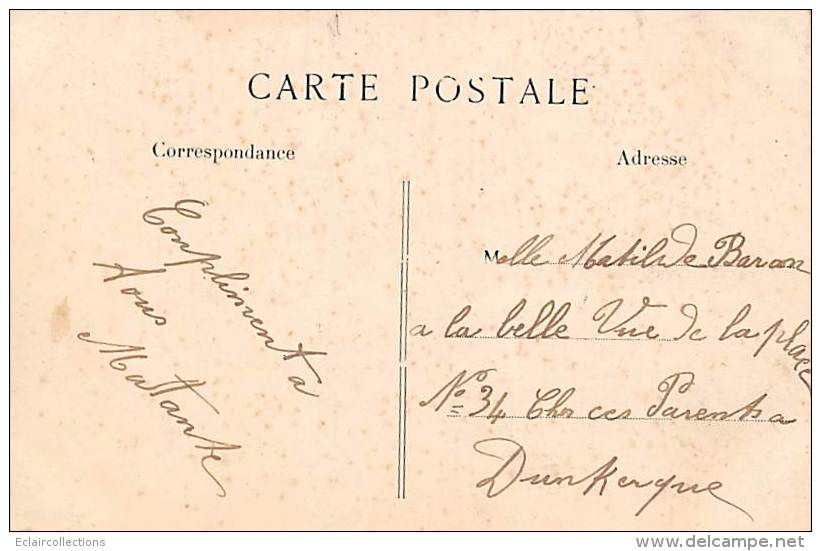 CARTE POSTALE
Correspondance
Adresse
Compliment a
Tous
Mattante
Melle Matilde Baron
a la belle Vue de la place
No 34 Chos ces Parents a
Dunkerque
Eclaircollections
delcampe.net